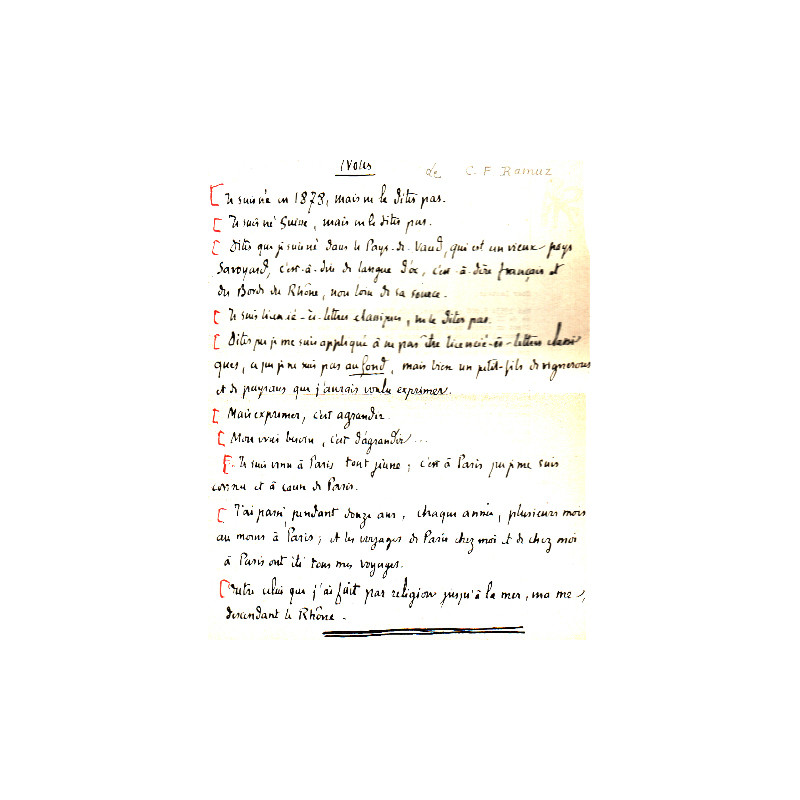 Notes de C. F. Ramuz
Je suis né en 1878, mais ne le dites pas.
Je suis né Suisse, mais ne le dites pas.
Dites que je suis né dans le Pays-de-Vaud, qui est un vieux pays
Savoyard, c'est-à-dire de langue d'oc, c'est-à-dire français et
des Bords du Rhône, non loin de sa source.
Je suis licencié-ès-lettres classiques, ne le dites pas.
Dites que je me suis appliqué à ne pas être licencié-ès-lettres classi
ques, ce que je ne suis pas au fond, mais bien un petit-fils de vignerons
et de paysans que j'aurais voulu exprimer.
Mais exprimer, c'est agrandir.
Mon vrai besoin, c'est d'agrandir...
Je suis venu à Paris tout jeune; c'est à Paris que je me suis
connu et à cause de Paris.
J'ai passé pendant douze ans, chaque année, plusieurs mois
au moins à Paris; et les voyages de Paris chez moi et de chez moi
à Paris ont été tous mes voyages.
Outre celui que j'ai fait par religion jusqu'à la mer, ma mer,
descendant le Rhône.